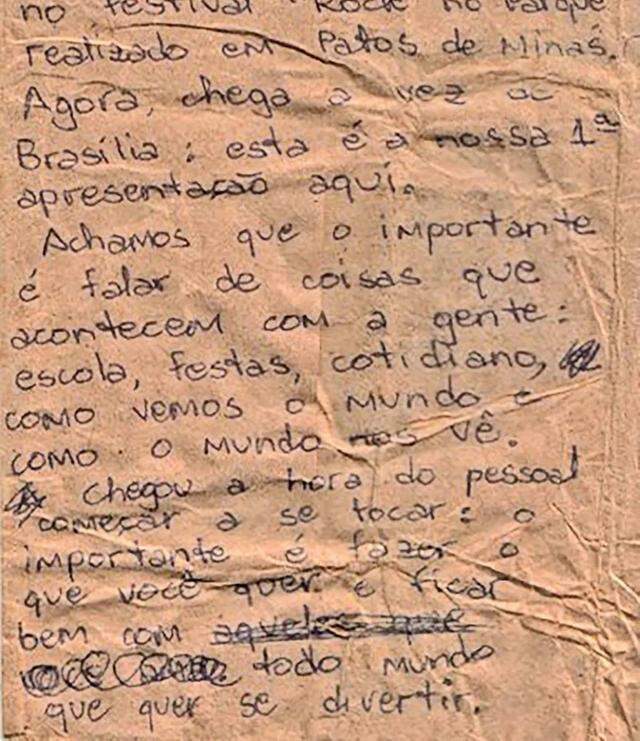 no festival Rock no Parque
realizado em Patos de Minas.
Agora, chega a vez de
Brasília: esta é a nossa 1ª
apresentação aqui.
Achamos que o importante
é falar de coisas que
acontecem com a gente:
escola, festas, cotidiano,
como vemos o mundo e
como o mundo nos vê.
Chegou a hora do pessoal
começar a se tocar: o
importante é fazer o
que você quer e ficar
bem com aqueles que
todo mundo
que quer se divertir.